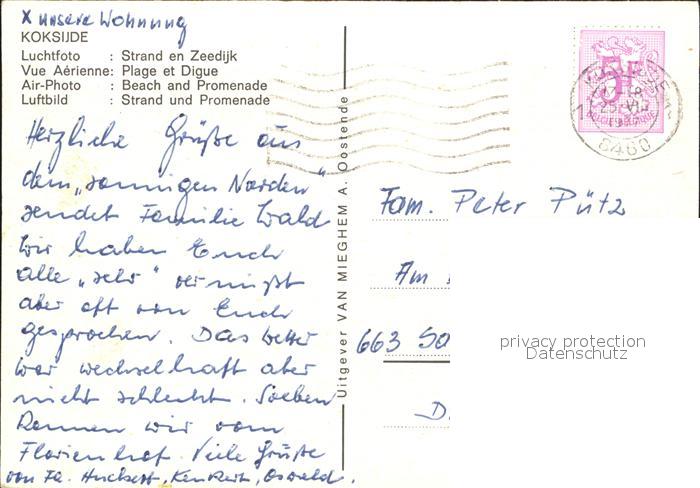 x unsere Wohnung
KOKSIJDE
Luchtfoto : Strand en Zeedijk
Vue Aérienne: Plage et Digue
Air-Photo : Beach and Promenade
Luftbild : Strand und Promenade
Herzliche Grüße aus
dem "sonnigen Norden"
sendet Familie Wald
Wir haben Euch
alle "sehr" vermißt
aber oft von Euch
gesprochen. Das Wetter
war wechselhaft aber
nicht schlecht. Soeben
kommen wir vom
Florienhof. Viele Grüße
von Fa. Oswald.
Uitgever VAN MIEGHEM A. Oostende
5F
BELGIE-BELGIQUE
8460
Fam. Peter Pütz
Am
663
D.
privacy protection
Datenschutz